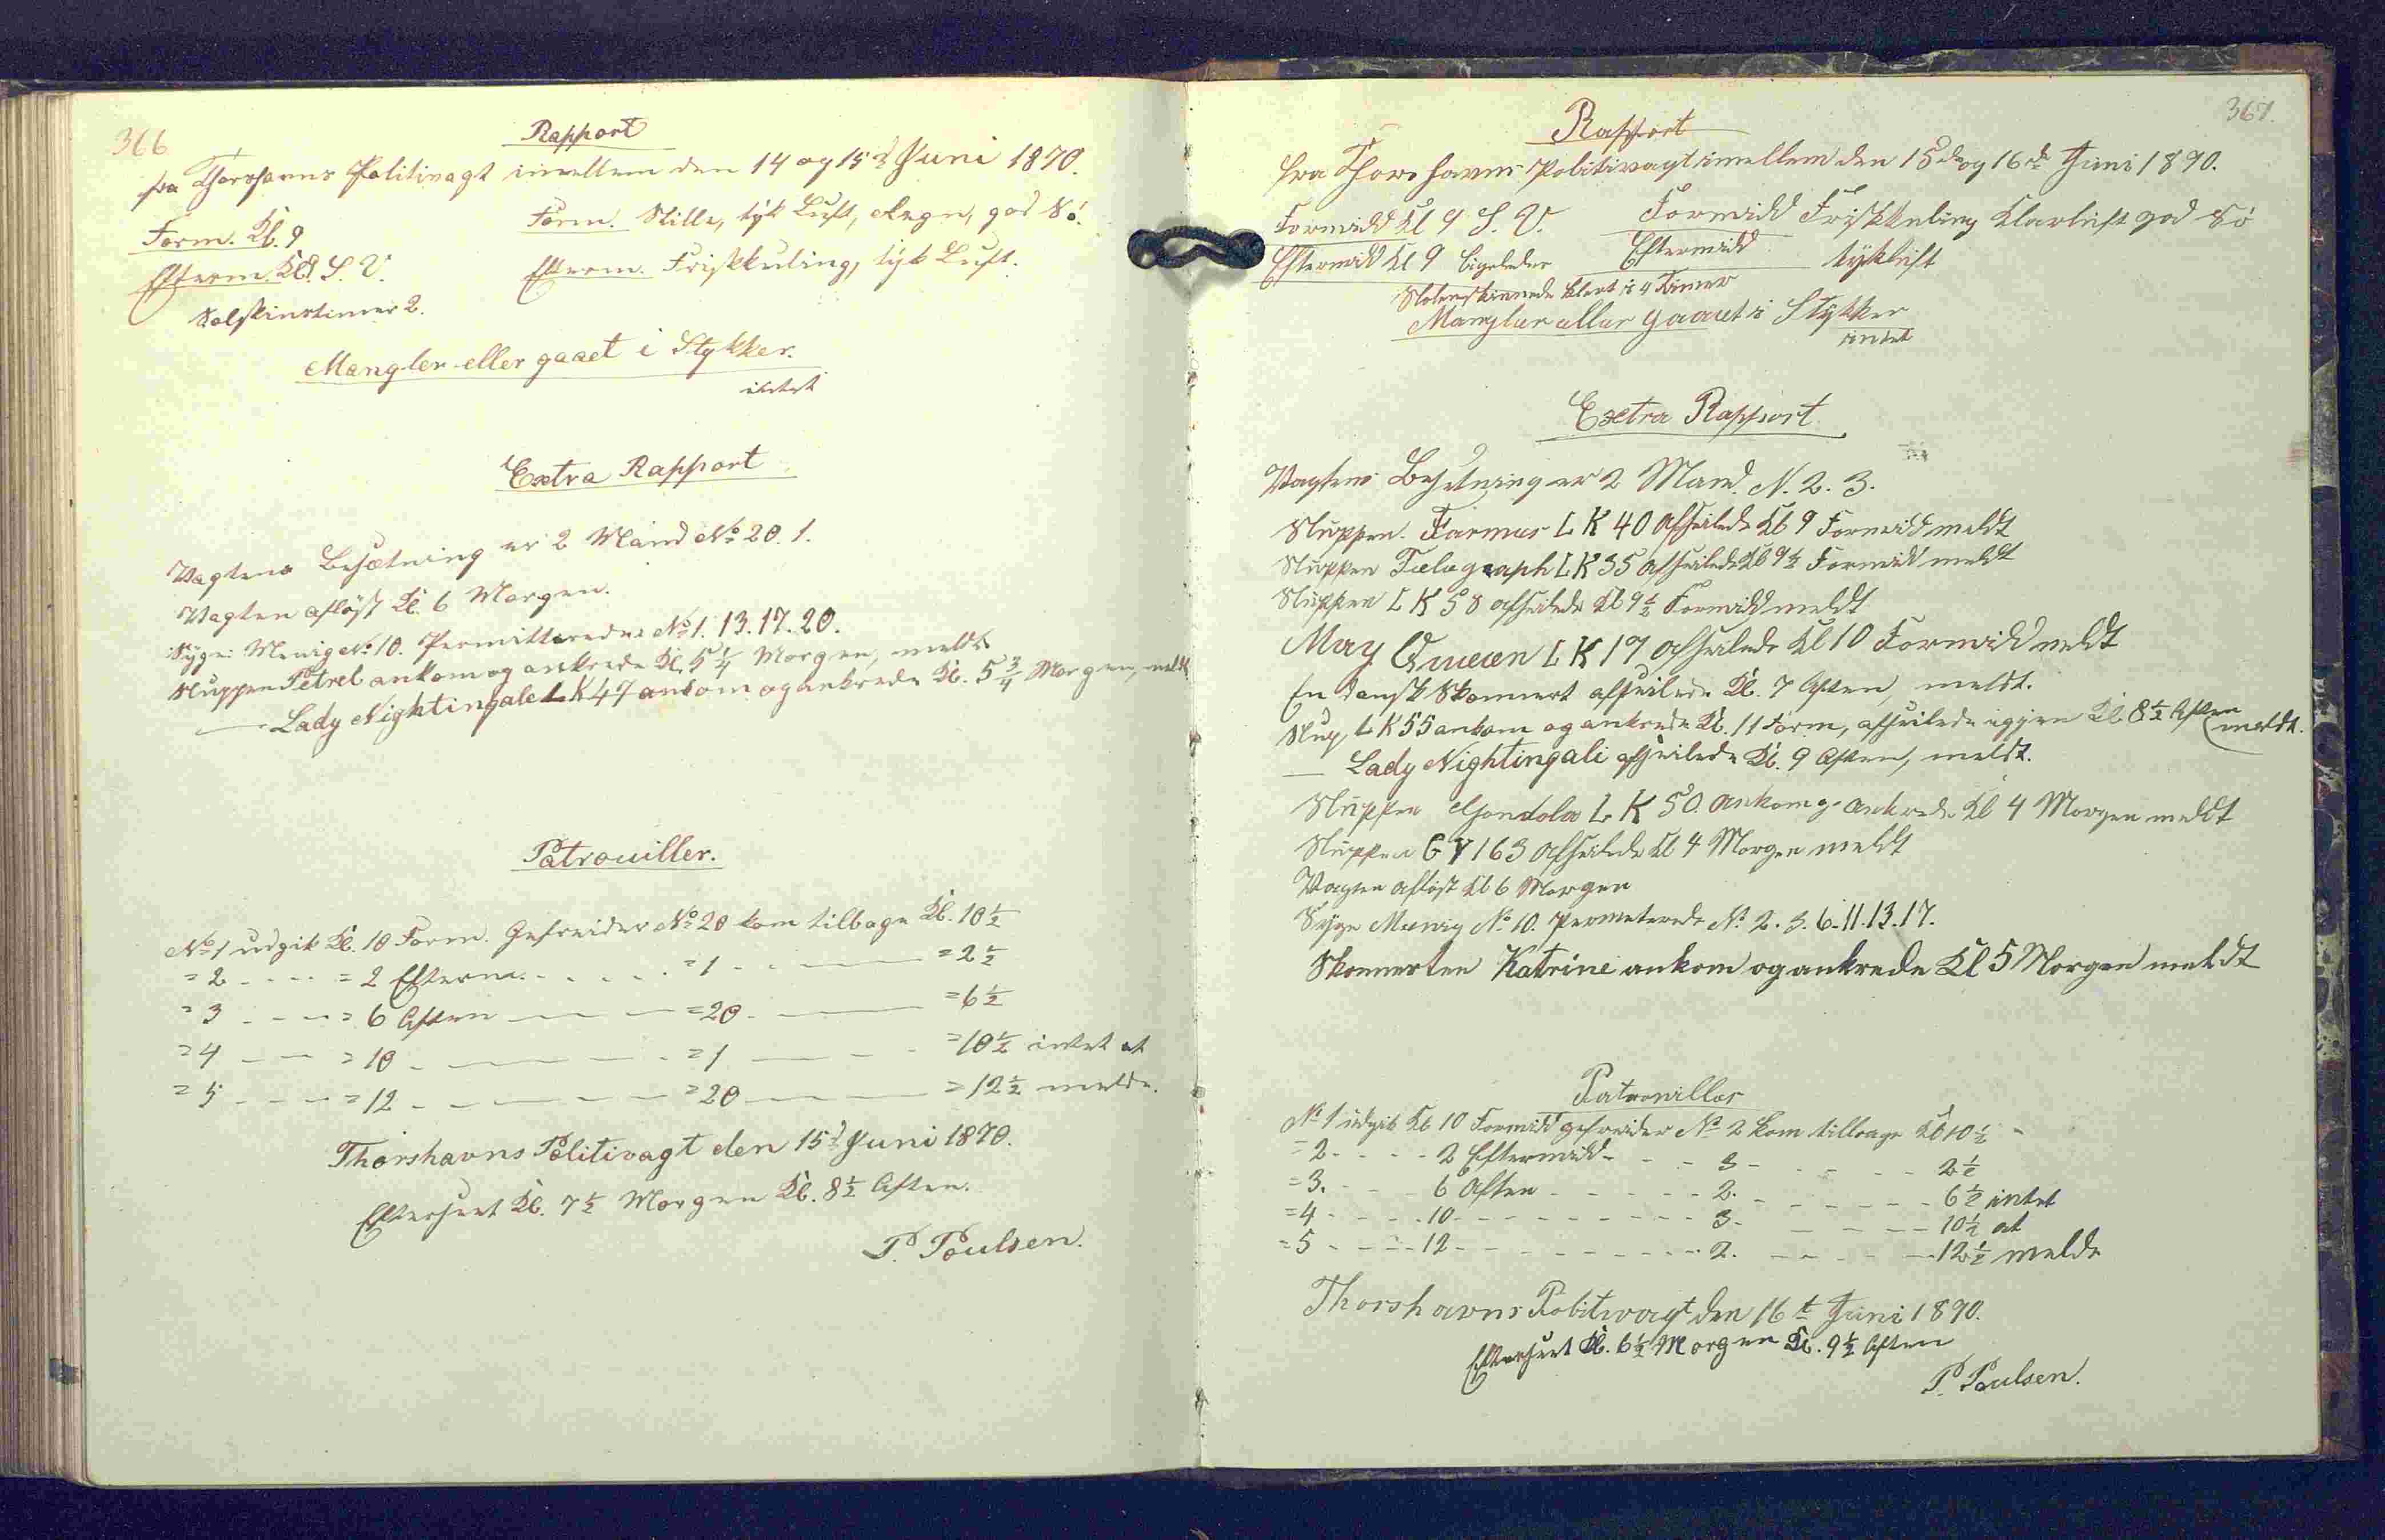 366
Rapport
fra Thorshavns Politivagt imellem den 14 og 15d Juni 1890.
Form. Kl. 9
Form. Stille, tyk Luft, Regn, god Sö.
Efterm. Kl. 9 S. V.
Efterm. Friskkuling, tyk Luft.
Solskinstimer 2.
Mangler eller gaaet i Stykker.
intet
Extra Rapport
Vagtens Besætning er 2 Mand No 20. 1.
Vagten aflöst Kl. 6 Morgen.
Syge: Menig No 10. Permitterede No 1. 13. 17. 20.
Sluppen Petrel ankom og ankrede Kl. 5 1/4 Morgen, meldt
— Lady Nightingale LK 47 ankom og ankrede Kl. 5 3/4 Morgen, meldt
Patrouiller.
No 1 udgik Kl. 10 Form. Gefreider No 20 kom tilbage Kl. 10 1/2
= 2 - - - = 2 Efterm. - - - - = 1 - - — = 2 1/2
= 3 - - - = 6 Aften — — = 20 - — = 6 1/2
= 4 - - = 10 - — — - = 1 — - - = 10 1/2 intet at
= 5 - - - = 12 - - — — = 20 — — = 12 1/2 melde.
Thorshavns Politivagt den 15d Juni 1890.
Efterseet Kl. 7 1/2 Morgen Kl. 8 1/2 Aften.
P. Poulsen.
367.
Rapport
fra Thorshavns Politivagt imellem den 15de og 16de Juni 1890.
Formidd Kl 9 S. V. Formidd Friskkuling Klarluft god Sö
Eftermidd Kl 9 ligeledes Eftermidd tykluft
Solen skinnede klart i 4 Timer
Mangler eller gaaet i Stykker
intet
Extra Rapport
Vagtens Besetning er 2 Mand. N. 2. 3.
Sluppen Farmer LK 40 afseilede Kl 9 Formidd meldt
Sluppen Telegraph LK 35 afseilede Kl 9 1/2 Formidd meldt
Sluppen LK 58 afseilede Kl 9 1/2 Formidd meldt
May Queen LK 17 afseilede Kl 10 Formidd meldt
En dansk Skonnert afseilede Kl. 7 Aften, meldt.
Slup, LK 55 ankom og ankrede Kl. 11 Form, afseilede igjen Kl. 8 1/2 Aften meldt.
— Lady Nightingali afseilede Kl. 9 Aften, meldt.
Sluppen Gondola LK 50. ankom og ankrede Kl 4 Morgen meldt
Sluppen GY 163 afseilede Kl 4 Morgen meldt
Vagten aflöst Kl 6 Morgen
Syge Menig No 10. Permeterede No 2. 3. 6. 11. 13. 17.
Skonnerten Katrine ankom og ankrede Kl 5 Morgen meldt
Patrouiller
No 1 udgik Kl 10 Formidd gefreider No 2 kom tilbage Kl 10 1/2 -
= 2 - - - - 2 Eftermidd - - - 3 - - - - - 2 1/2
= 3. - - - 6 Aften - - - - - 2. - - - - - 6 1/2 intet
= 4 - - - - 10 - - - - - - - - 3. - - - - 10 1/2 at
= 5 - - - - 12 - - - - - - - - 2. - - - - 12 1/2 melde
Thorshavns Politivagt den 16t Juni 1890.
Efterseet Kl. 6 1/2 Morgen Kl. 9 1/2 Aften
P. Poulsen.